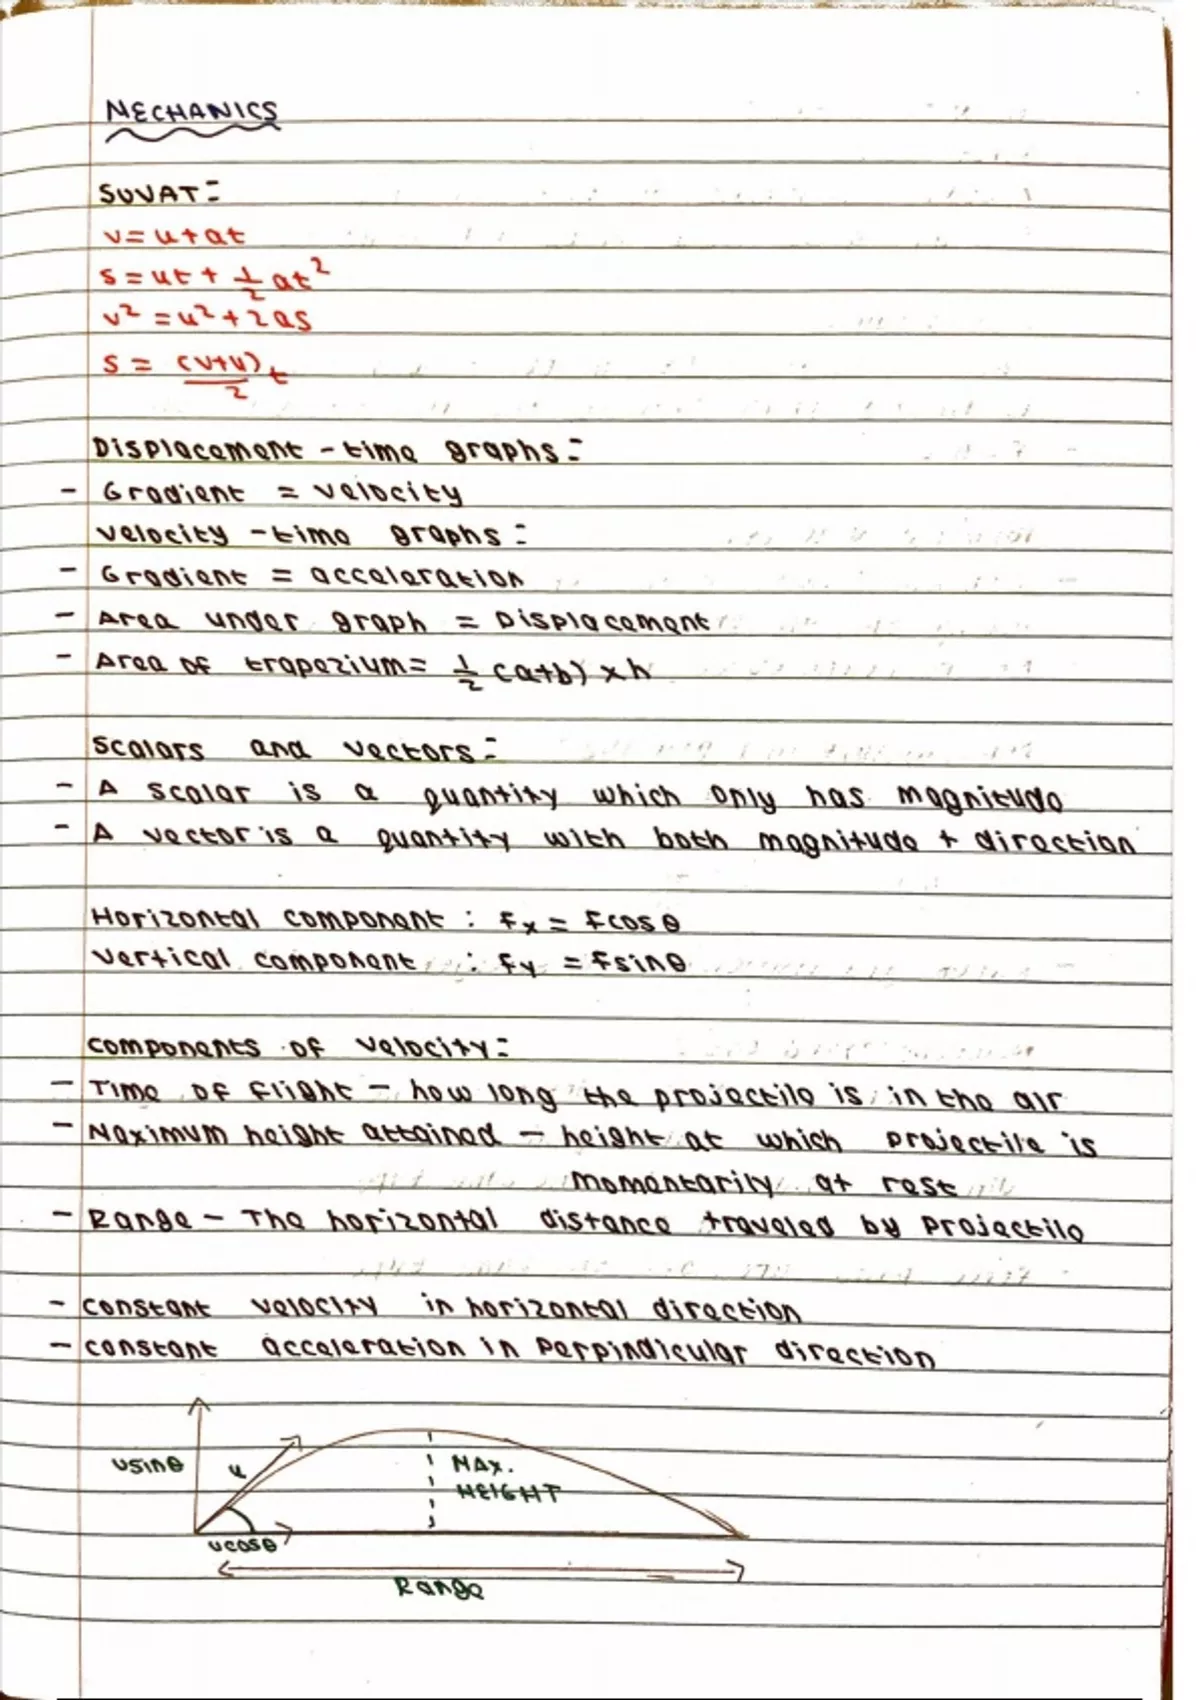 MECHANICS
SUVAT:
v = u + at
s = ut + 1/2 at²
v² = u² + 2as
s = (v+u)/2 t
Displacement - time graphs:
- Gradient = velocity
velocity - time graphs:
- Gradient = acceleration
- Area under graph = Displacement
- Area of trapezium = 1/2 (a+b) × h
Scalars and vectors:
- A scalar is a quantity which only has magnitude
- A vector is a quantity with both magnitude + direction
Horizontal component : Fx = Fcosθ
vertical component : Fy = Fsinθ
components of velocity:
- Time of flight - how long the projectile is in the air
- Maximum height attained - height at which projectile is
momentarily at rest
- Range - The horizontal distance traveled by projectile
- constant velocity in horizontal direction
- constant acceleration in perpindicular direction
usinθ
u
MAX.
HEIGHT
ucosθ
Range